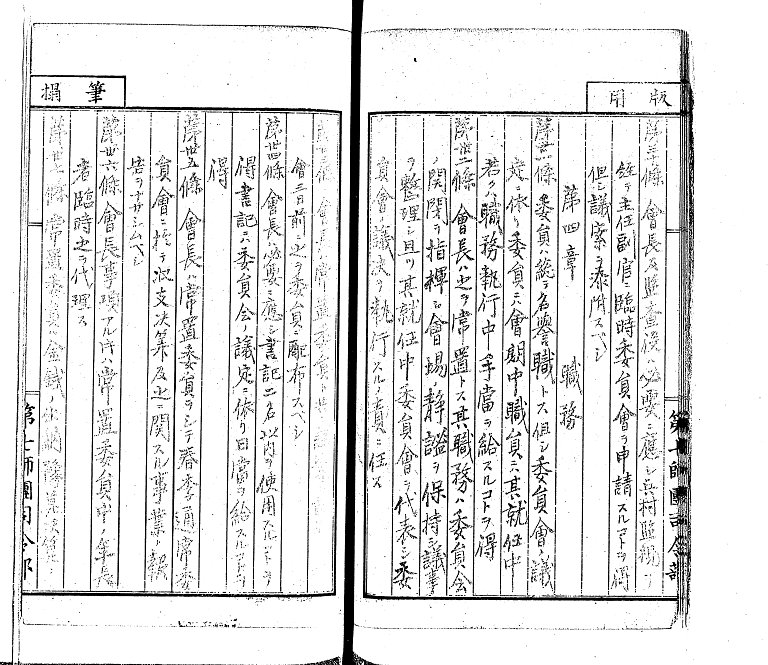 版
用
第三十條 會長及監査役必要ニ應シ兵村監視ノ
主任副官ニ臨時委員會ヲ申請スルコトヲ得
但シ議案ヲ添附スベシ
第四章 職務
第卅一條 委員ハ総テ名譽職トス但シ委員會ノ議
定ニ依リ委員ニハ會期中職員ニハ其就任中
若クハ職務執行中手當ヲ給スルコトヲ得
第卅二條 會長ハ之ヲ常置トス其職務ハ委員會
ノ開閉ヲ指揮シ會場ノ静謐ヲ保持シ議事
ヲ整理シ且ツ其就任中委員會ヲ代表シ委
員會ノ議決ヲ執行スルノ責ニ任ス
第七師團司令部
筆
揭
第卅三條 會長ハ常置委員ト
會三日前之ヲ委員ニ配布スベシ
第卅四條 會長ハ必要ニ應シ書記二名以内ヲ使用スルコトヲ
得書記ニハ委員會ノ議定ニ依リ日當ヲ給スルコトヲ
得
第卅五條 會長ハ常置委員ヲシテ春季通常委
員會ニ於テ収支決算及之ニ関スル事業ノ報
告ヲナサシムベシ
第卅六條 會長事故アルトキハ常置委員中ノ年長
者臨時之カ代理ス
第卅七條 常置委員ハ金銭ノ出納豫算決算
第七師團司令部